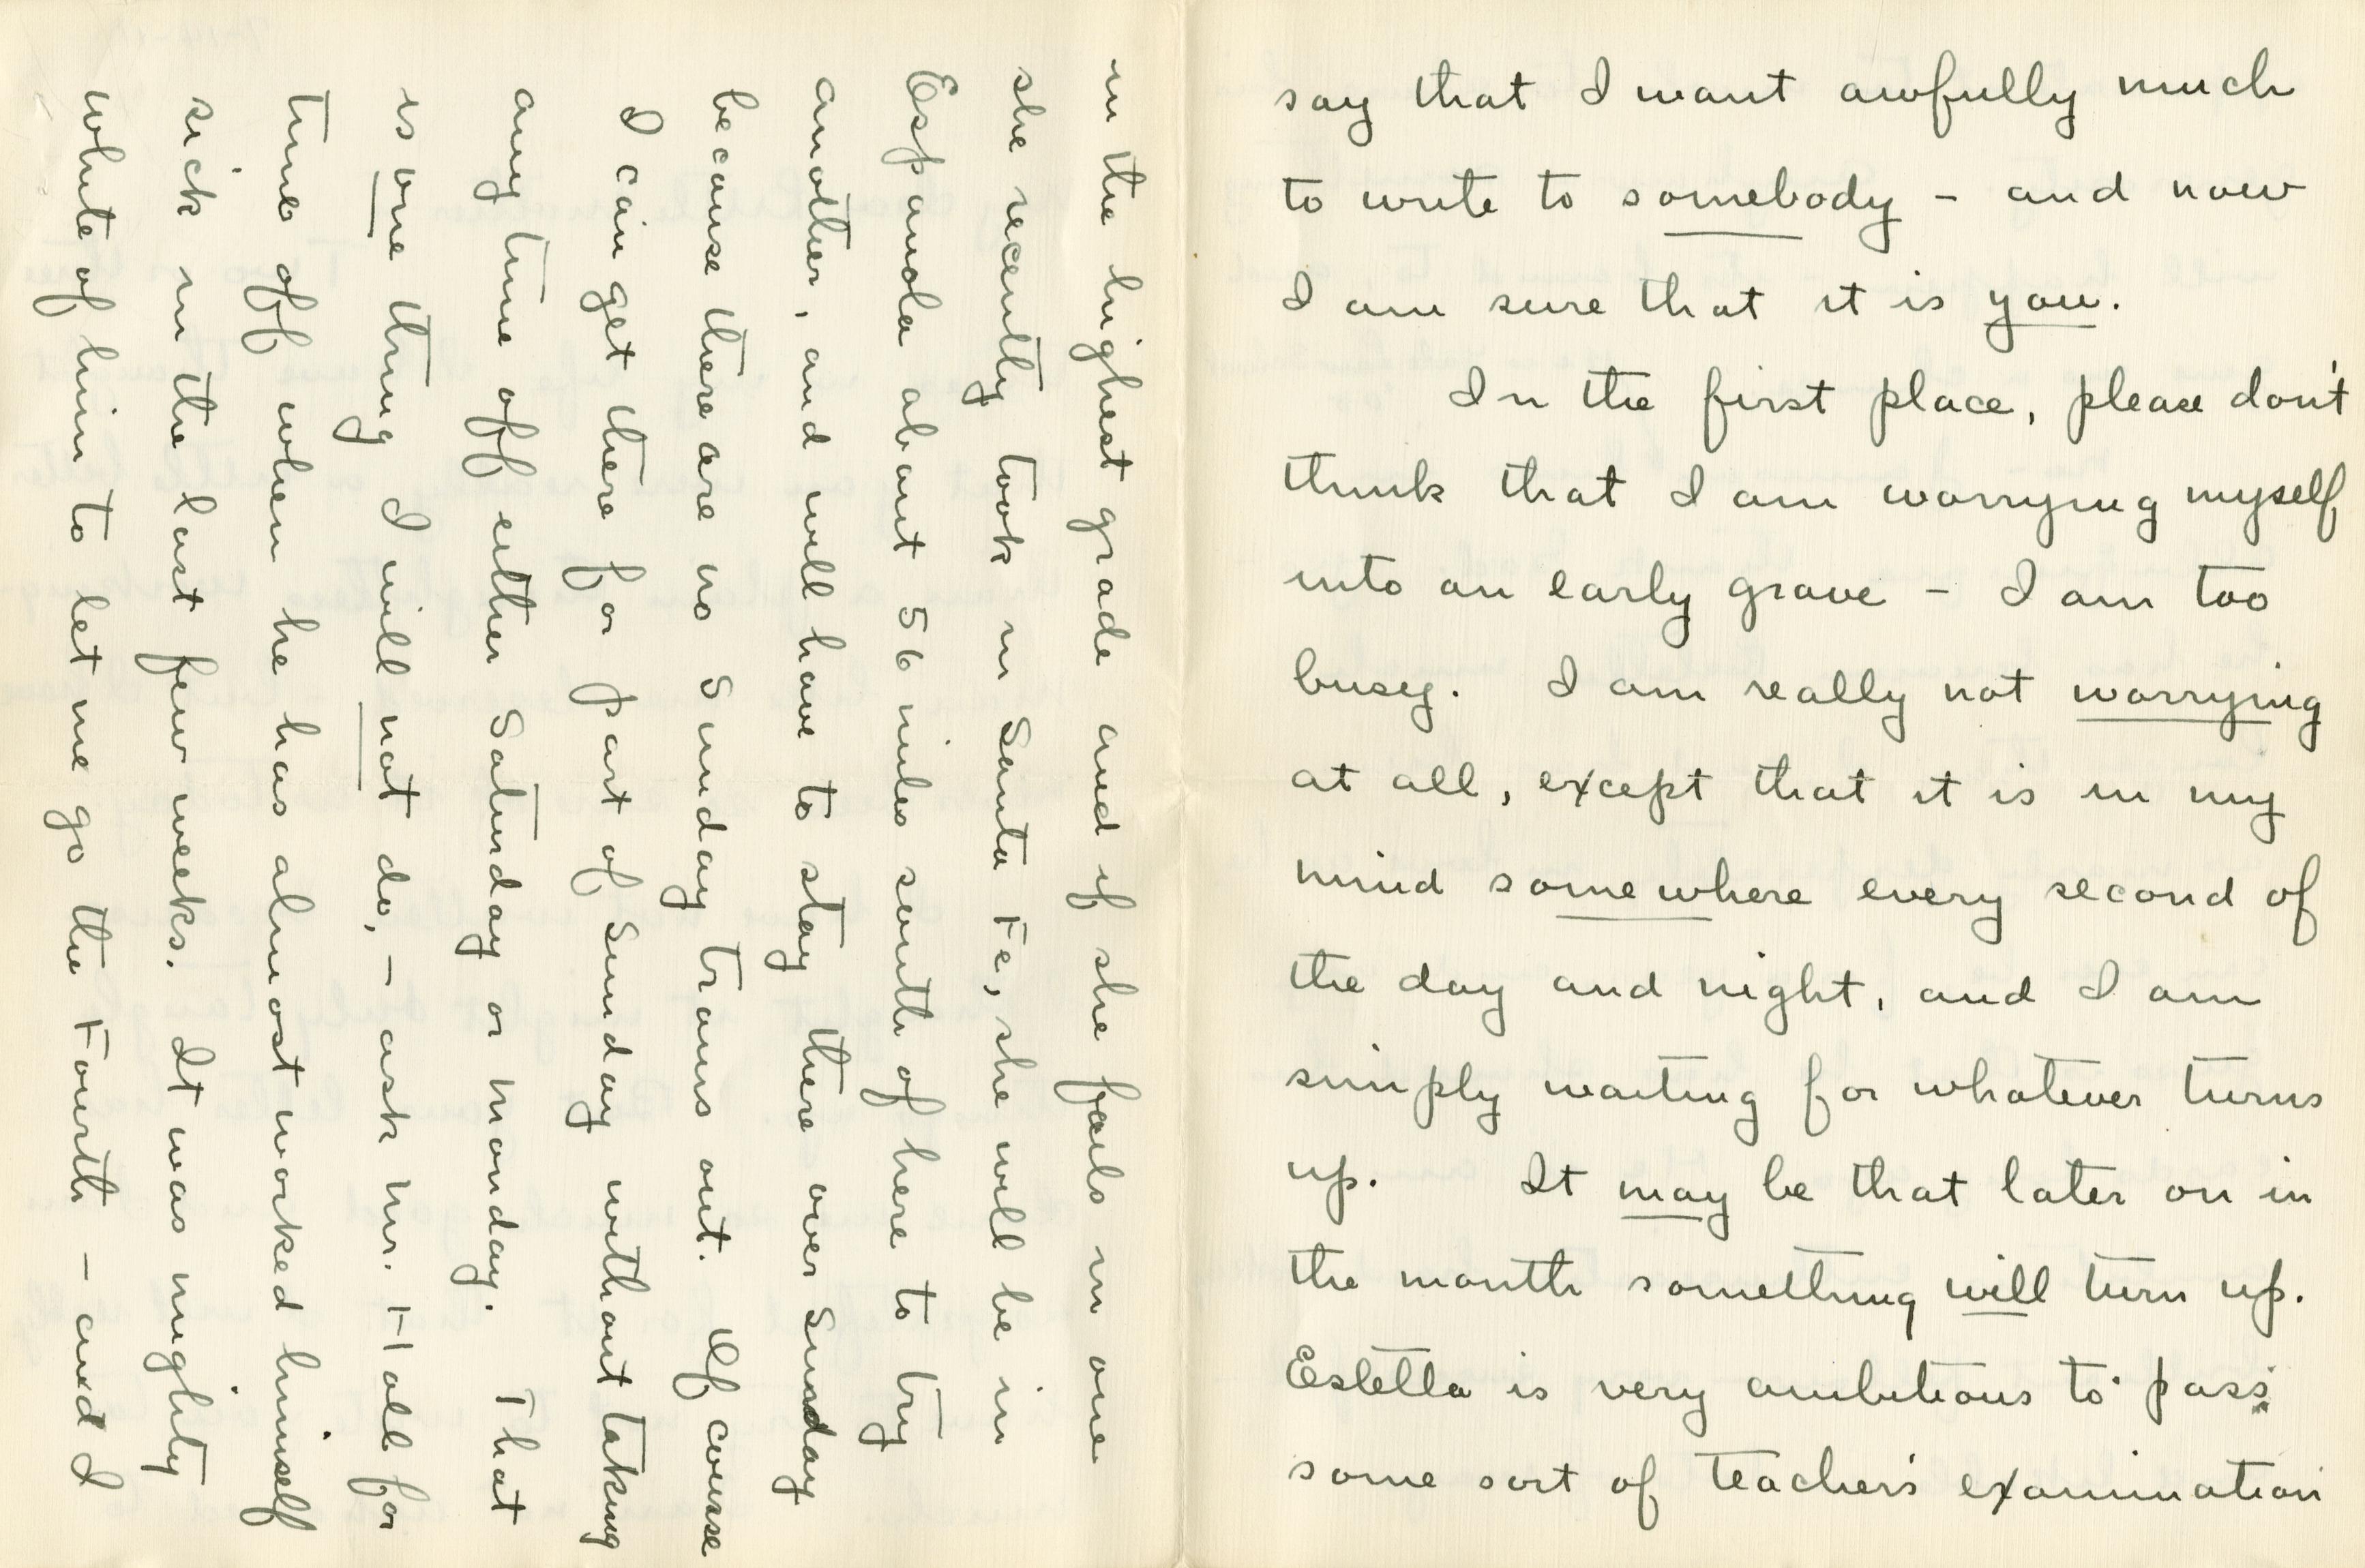 say that I want awfully much
to write to somebody - and now
I am sure that it is you.
In the first place, please don't
think that I am worrying myself
into an early grave - I am too
busy. I am really not worrying
at all, except that it is in my
mind somewhere every second of
the day and night, and I am
simply waiting for whatever turns
up. It may be that later on in
the month something will turn up.
Estella is very ambitious to pass
some sort of teacher's examination
in the highest grade and if she fails in one
she recently took in Santa Fe, she will be in
Española about 56 miles south of here to try
another, and will have to stay there over Sunday
because there are no Sunday trains out. Of course
I can get there for part of Sunday without taking
any time off either Saturday or Monday. That
is one thing I will not do, - ask Mr. Hall for
time off when he has almost worked himself
sick in the last few weeks. It was mighty
white of him to let me go the Fourth - and I